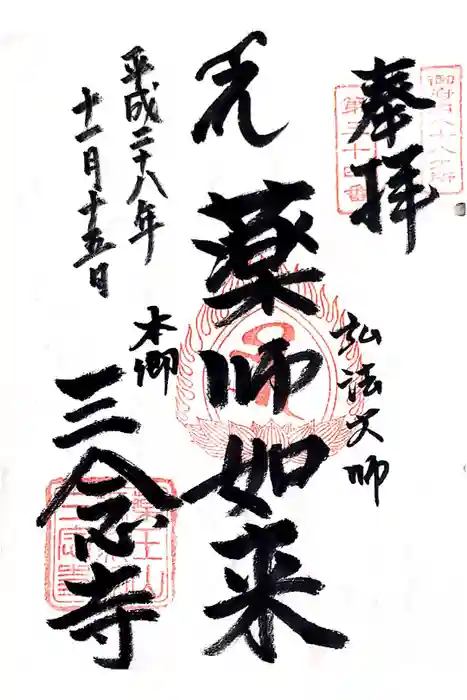 奉拝
御府内八十八ヶ所
第三十四番
弘法大師
薬師如来
本郷
三念寺
平成二十八年
十一月十五日